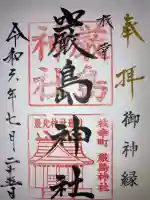 奉拝
御神縁
枝幸
嚴島神社
枝幸町
嚴島神社
令和六年七月二十